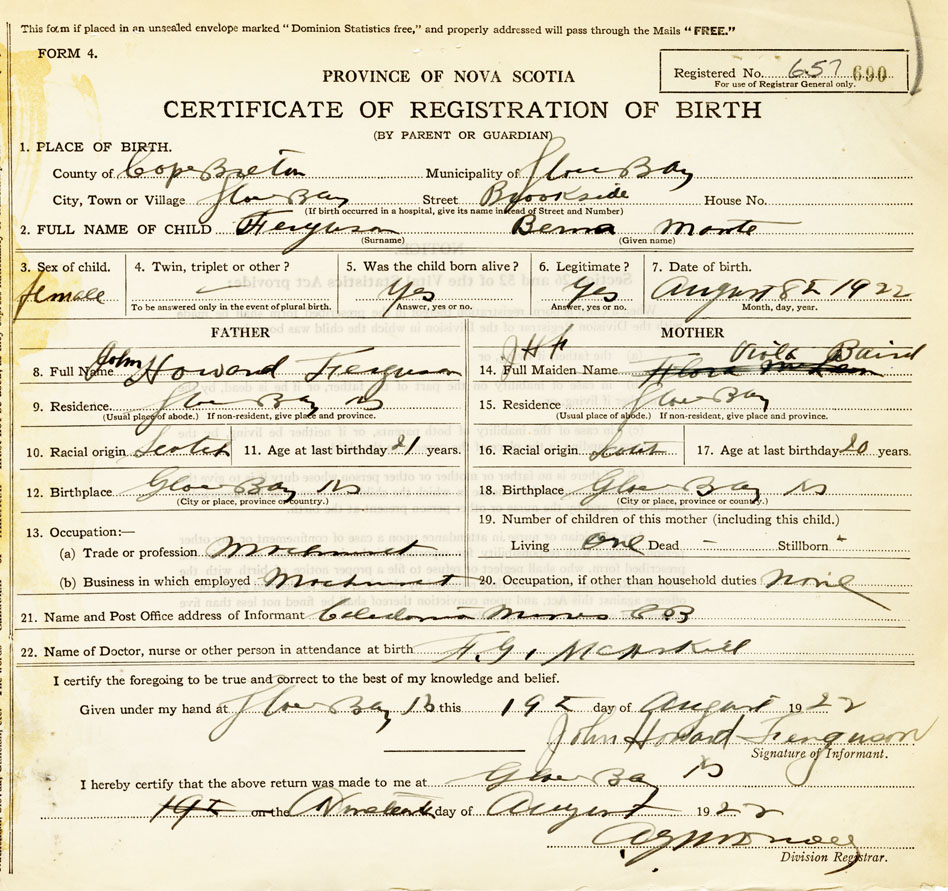 This form if placed in an unsealed envelope marked "Dominion Statistics free," and properly addressed will pass through the Mails "FREE."
FORM 4.
Registered No. 657 690
For use of Registrar General only.
PROVINCE OF NOVA SCOTIA
CERTIFICATE OF REGISTRATION OF BIRTH
(BY PARENT OR GUARDIAN)
1. PLACE OF BIRTH.
County of Cape Breton Municipality of Glace Bay
City, Town or Village Glace Bay Street Brookside House No.
(If birth occurred in a hospital, give its name instead of Street and Number)
2. FULL NAME OF CHILD Ferguson Berna Monte
(Surname) (Given name)
3. Sex of child. 4. Twin, triplet or other? 5. Was the child born alive? 6. Legitimate? 7. Date of birth.
female — Yes Yes August 8th 1922
To be answered only in the event of plural birth. Answer, yes or no. Answer, yes or no. Month, day, year.
FATHER MOTHER
JHF Viola Baird
8. Full Name John Howard Ferguson 14. Full Maiden Name Flora McLean
9. Residence Glace Bay NS 15. Residence Glace Bay
(Usual place of abode.) If non-resident, give place and province. (Usual place of abode.) If non-resident, give place and province.
10. Racial origin Scotch 11. Age at last birthday 21 years. 16. Racial origin Scotch 17. Age at last birthday 20 years.
12. Birthplace Glace Bay NS 18. Birthplace Glace Bay NS
(City or place, province or country.) (City or place, province or country.)
13. Occupation:— 19. Number of children of this mother (including this child.)
(a) Trade or profession Machinist Living one Dead - Stillborn -
(b) Business in which employed Machinist 20. Occupation, if other than household duties None
21. Name and Post Office address of Informant Caledonia Mines C B
22. Name of Doctor, nurse or other person in attendance at birth
I certify the foregoing to be true and correct to the best of my knowledge and belief.
Given under my hand at Glace Bay this 19th day of August 1922
John Howard Ferguson
Signature of Informant.
I hereby certify that the above return was made to me at Glace Bay NS
19th on the Nineteenth day of August 1922
Division Registrar.